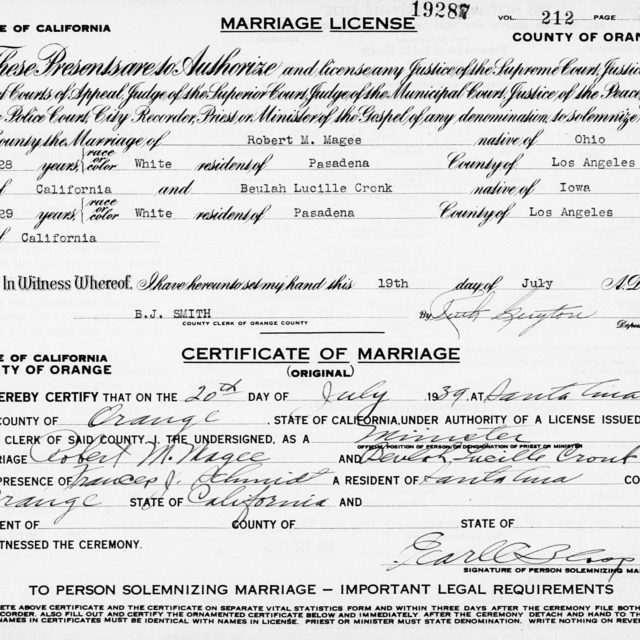 E OF CALIFORNIA
MARRIAGE LICENSE
19287
VOL. 212 PAGE
COUNTY OF ORAN
These Presents are to Authorize and license any Justice of the Supreme Court, Justic
d Courts of Appeal, Judge of the Superior Court, Judge of the Municipal Court, Justice of the Peace,
Police Court, City Recorder, Priest or Minister of the Gospel of any denomination, to solemnize
County the Marriage of Robert M. Magee native of Ohio
28 years, race or color White resident of Pasadena County of Los Angeles
f California and Beulah Lucille Cronk native of Iowa
29 years, race or color White resident of Pasadena County of Los Angeles
f California
In Witness Whereof, I have hereunto set my hand this 19th day of July A.D
B.J. SMITH By Ruth
COUNTY CLERK OF ORANGE COUNTY Depu
E OF CALIFORNIA
TY OF ORANGE
CERTIFICATE OF MARRIAGE
(ORIGINAL)
HEREBY CERTIFY THAT ON THE 20th DAY OF July 1939, AT Santa Ana
COUNTY OF Orange, STATE OF CALIFORNIA, UNDER AUTHORITY OF A LICENSE ISSUED
CLERK OF SAID COUNTY, I, THE UNDERSIGNED, AS A Minister
OFFICIAL POSITION OF PERSON, OR DENOMINATION OF PRIEST OR MINISTER
RIAGE Robert M. Magee AND Beulah Lucille Cronk
PRESENCE OF Frances J. Schmidt A RESIDENT OF Santa Ana CO
Orange STATE OF California AND
ENT OF COUNTY OF STATE OF
ITNESSED THE CEREMONY.
Earl C.
SIGNATURE OF PERSON SOLEMNIZING MA
TO PERSON SOLEMNIZING MARRIAGE – IMPORTANT LEGAL REQUIREMENTS
LETE ABOVE CERTIFICATE AND THE CERTIFICATE ON SEPARATE VITAL STATISTICS FORM AND WITHIN THREE DAYS AFTER THE CEREMONY FILE BOTH
CORDER. ALSO FILL OUT AND CERTIFY THE ORNAMENTED CERTIFICATE BELOW AND IMMEDIATELY AFTER THE CEREMONY DETACH AND HAND TO TH
NAMES IN CERTIFICATES MUST BE IDENTICAL WITH NAMES IN LICENSE. PRIEST OR MINISTER MUST STATE DENOMINATION. WRITE NOTHING ON REV